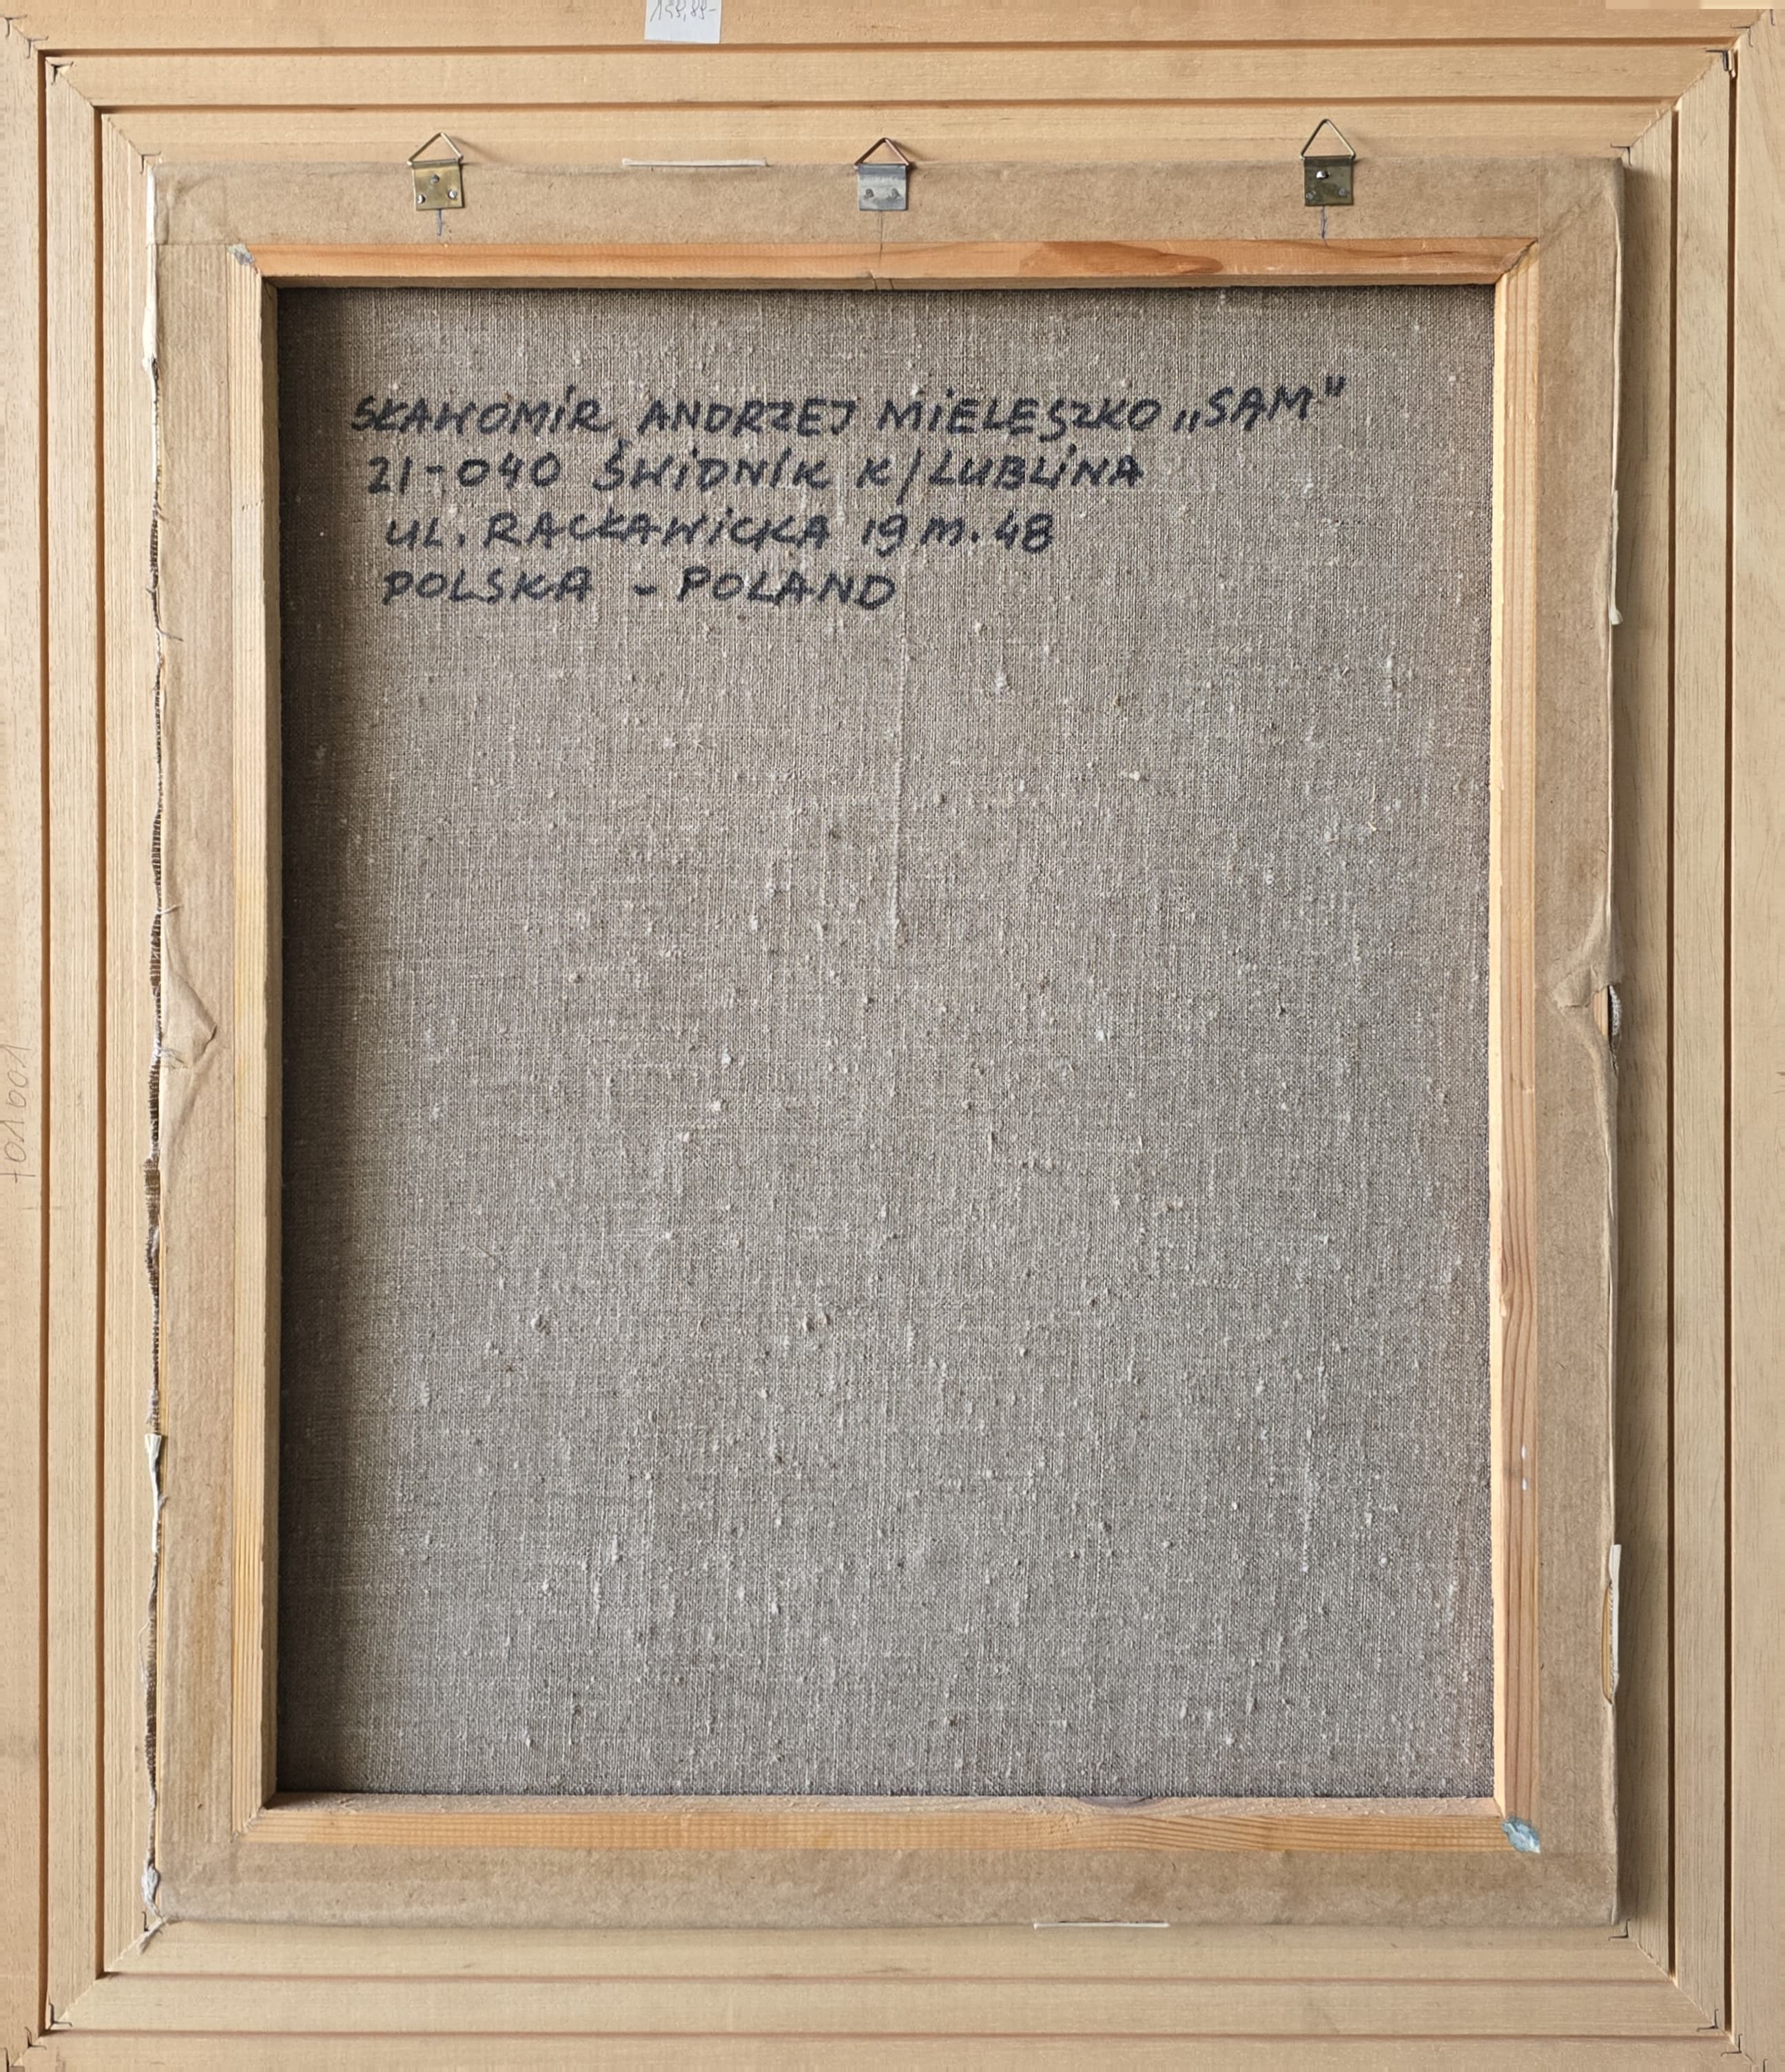 SŁAWOMiR ANDRZEJ MiELESZKO „SAM"
21-040 ŚWiDNiK K/LUBLiNA
UL. RACŁAWiCKA 19 M. 48
POLSKA - POLAND